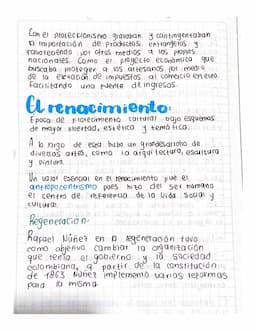 Con el proteccionismo gravaban y contingentaban
la importación de productos extranjeros y
favoreciendo por otros medios a los propios
nacionales. Como el proyecto económico que
buscaba proteger a los artesanos por medio
de la elevación de impuestos al comercio externo
Facilitando una fuente de ingresos.
El renacimiento:
Epoca de florecimiento cultural bajo esquemas
de mayor libertad, estética y temática.
A lo largo de esta hubo un gran desarrollo de
diversas artes, como la arquitectura, escultura
y pintura.
Un valor esencial en el renacimiento fue el
antropocentrismo pues hizo del ser humano
el centro de referencia de la vida social y
cultural.
Regeneracion:
Rafael Núñez en la regeneración tuvo
como objetivo cambiar la organización
que tenía el gobierno y la sociedad
colombiana, a partir de la constitución
de 1863 Núñez implementó varias reformas
para la misma.